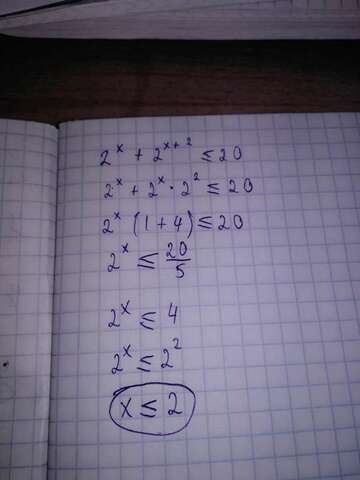 2^x + 2^{x+2} ≤ 20
2^x + 2^x · 2^2 ≤ 20
2^x (1 + 4) ≤ 20
2^x ≤ 20/5
2^x ≤ 4
2^x ≤ 2^2
x ≤ 2